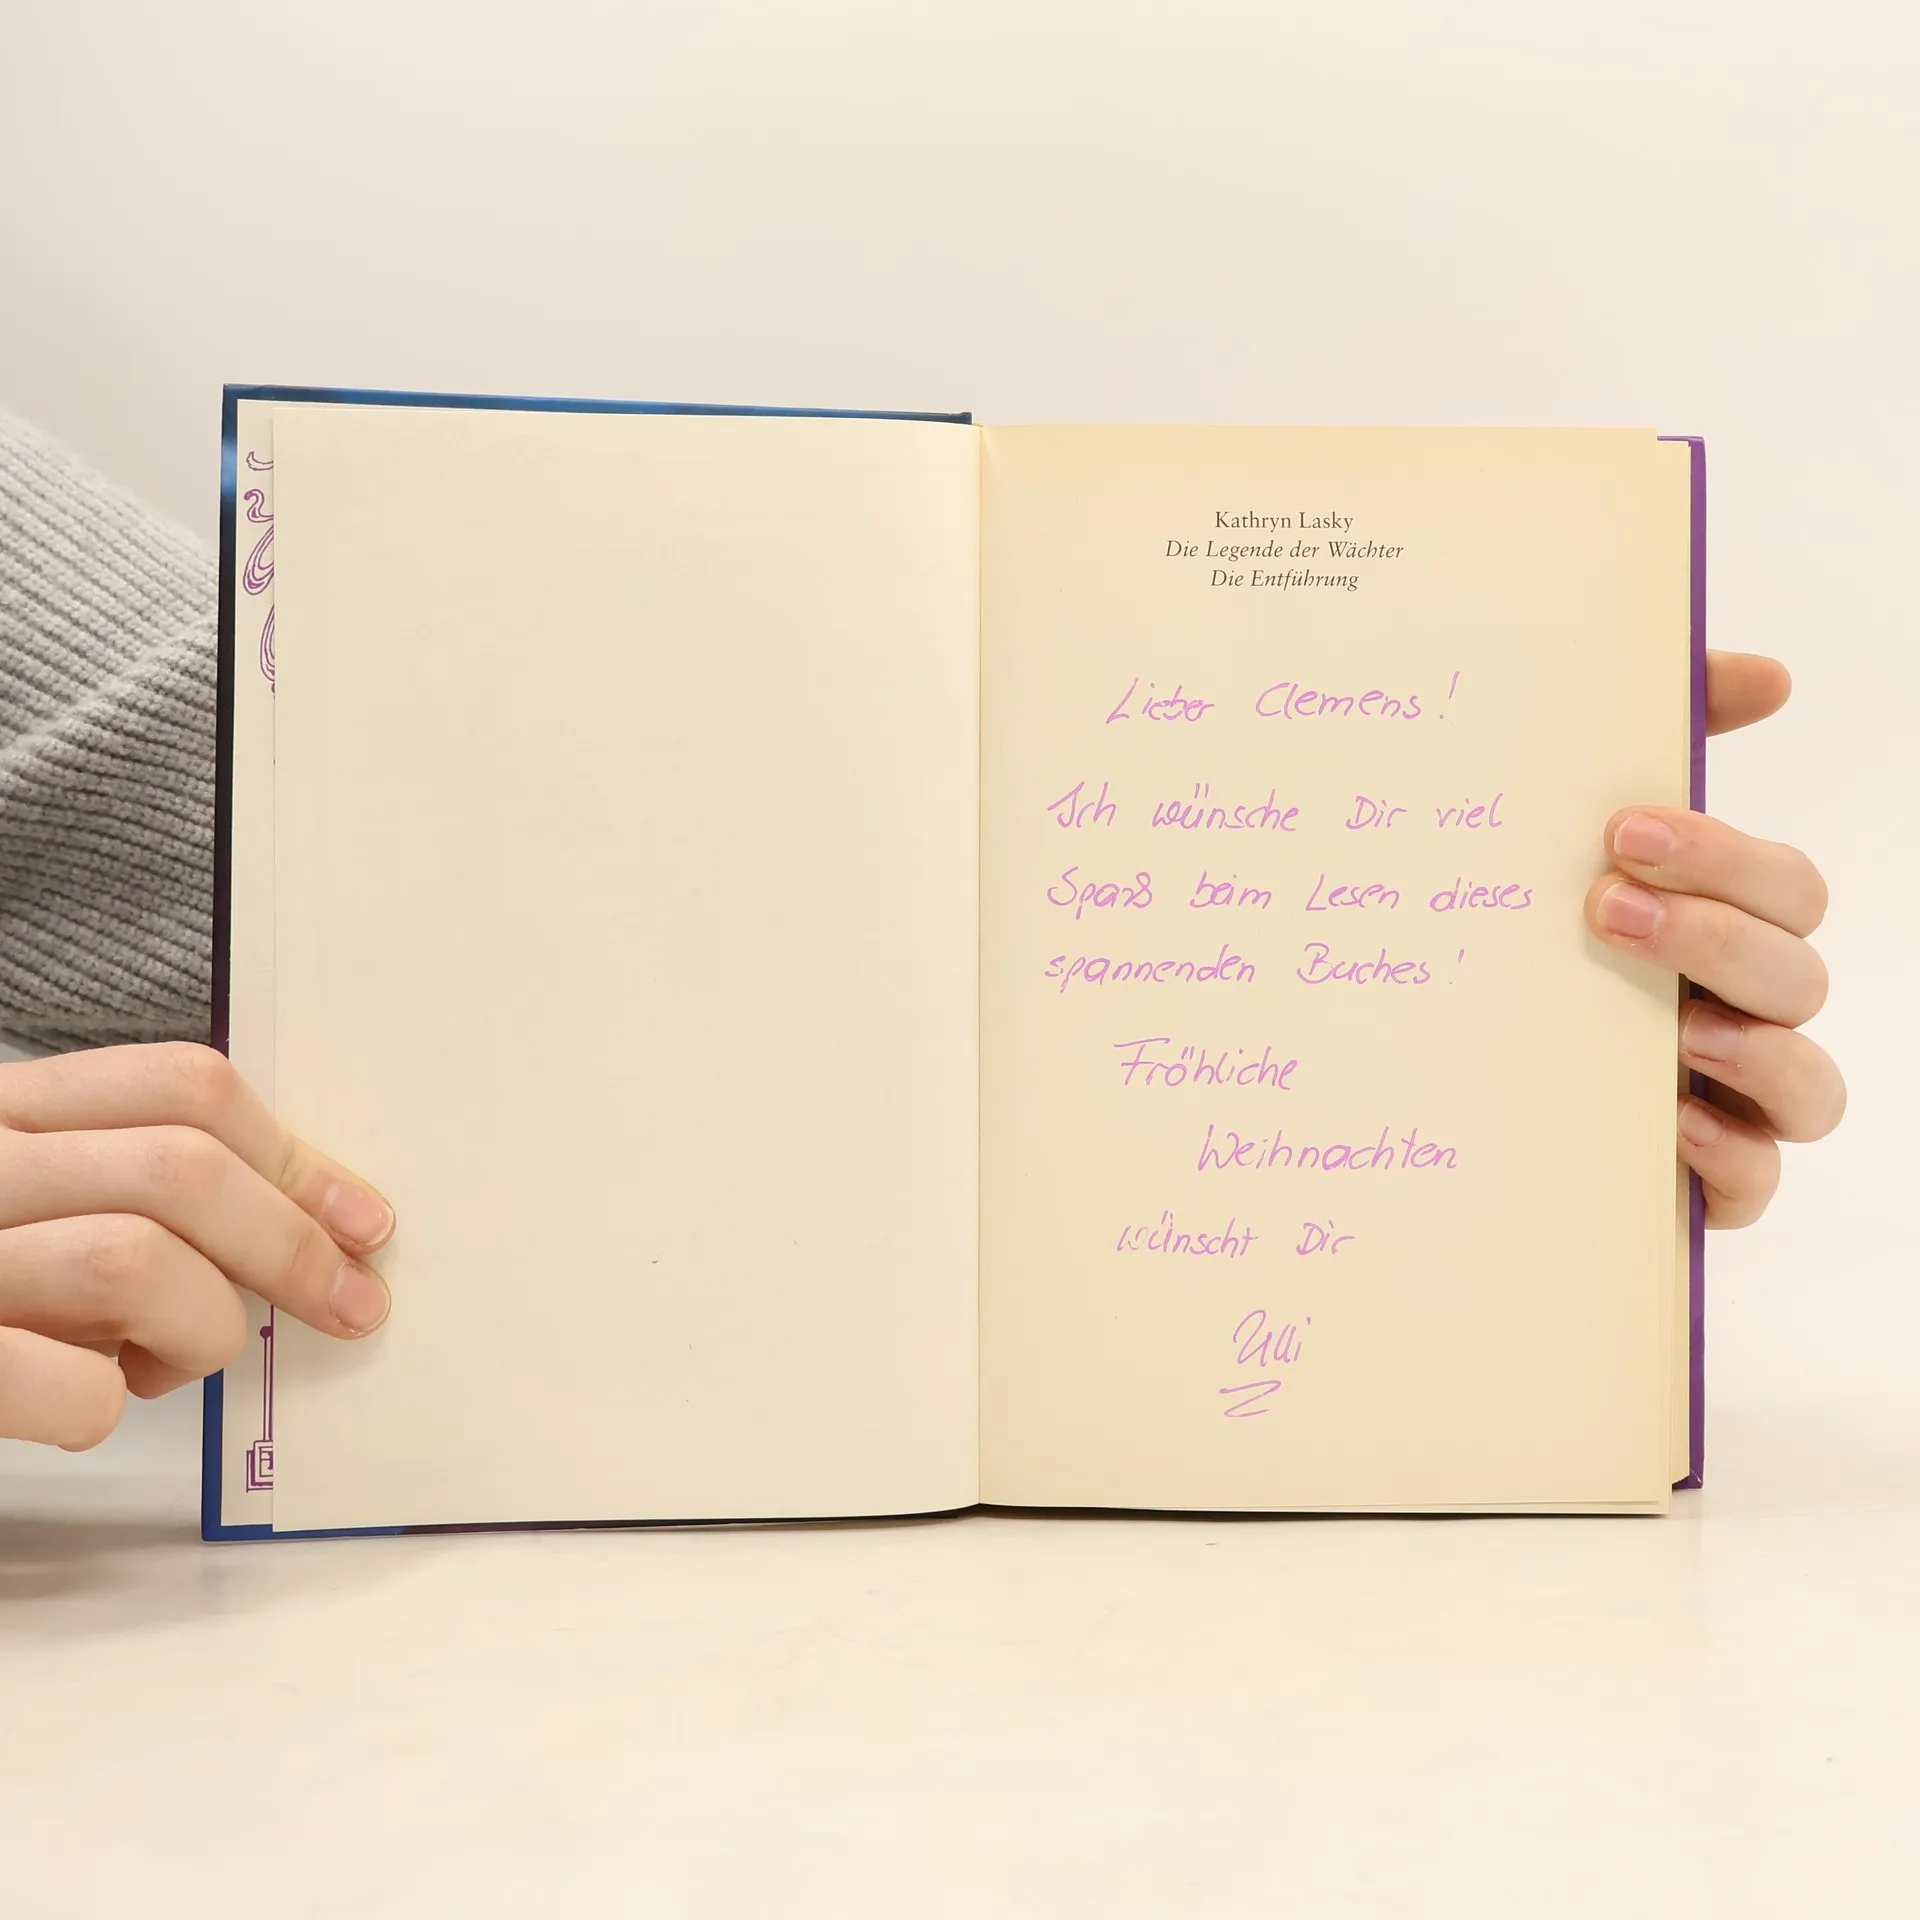 Kathryn Lasky
Die Legende der Wächter
Die Entführung
Lieber Clemens!
Ich wünsche Dir viel
Spaß beim Lesen dieses
spannenden Buches!
Fröhliche
Weihnachten
wünscht Dir
Ulli